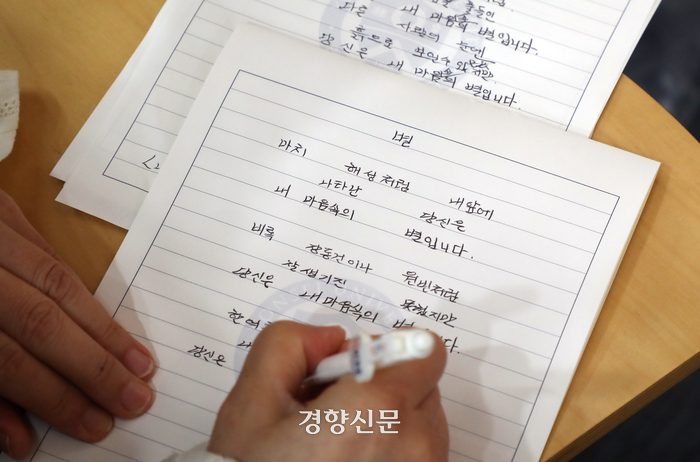 내 마음속의 별입니다.
다른 사람의 눈엔
흙으로 보일수 있지만
당신은 내 마음속의 별입니다.
별
마치 해성처럼 내앞에
나타난 당신은
내 마음속의 별입니다.
비록 장동건이나 원빈처럼
잘생기진 못했지만
당신은 내 마음속의 별
다.
한여
당신은 내
경향신문